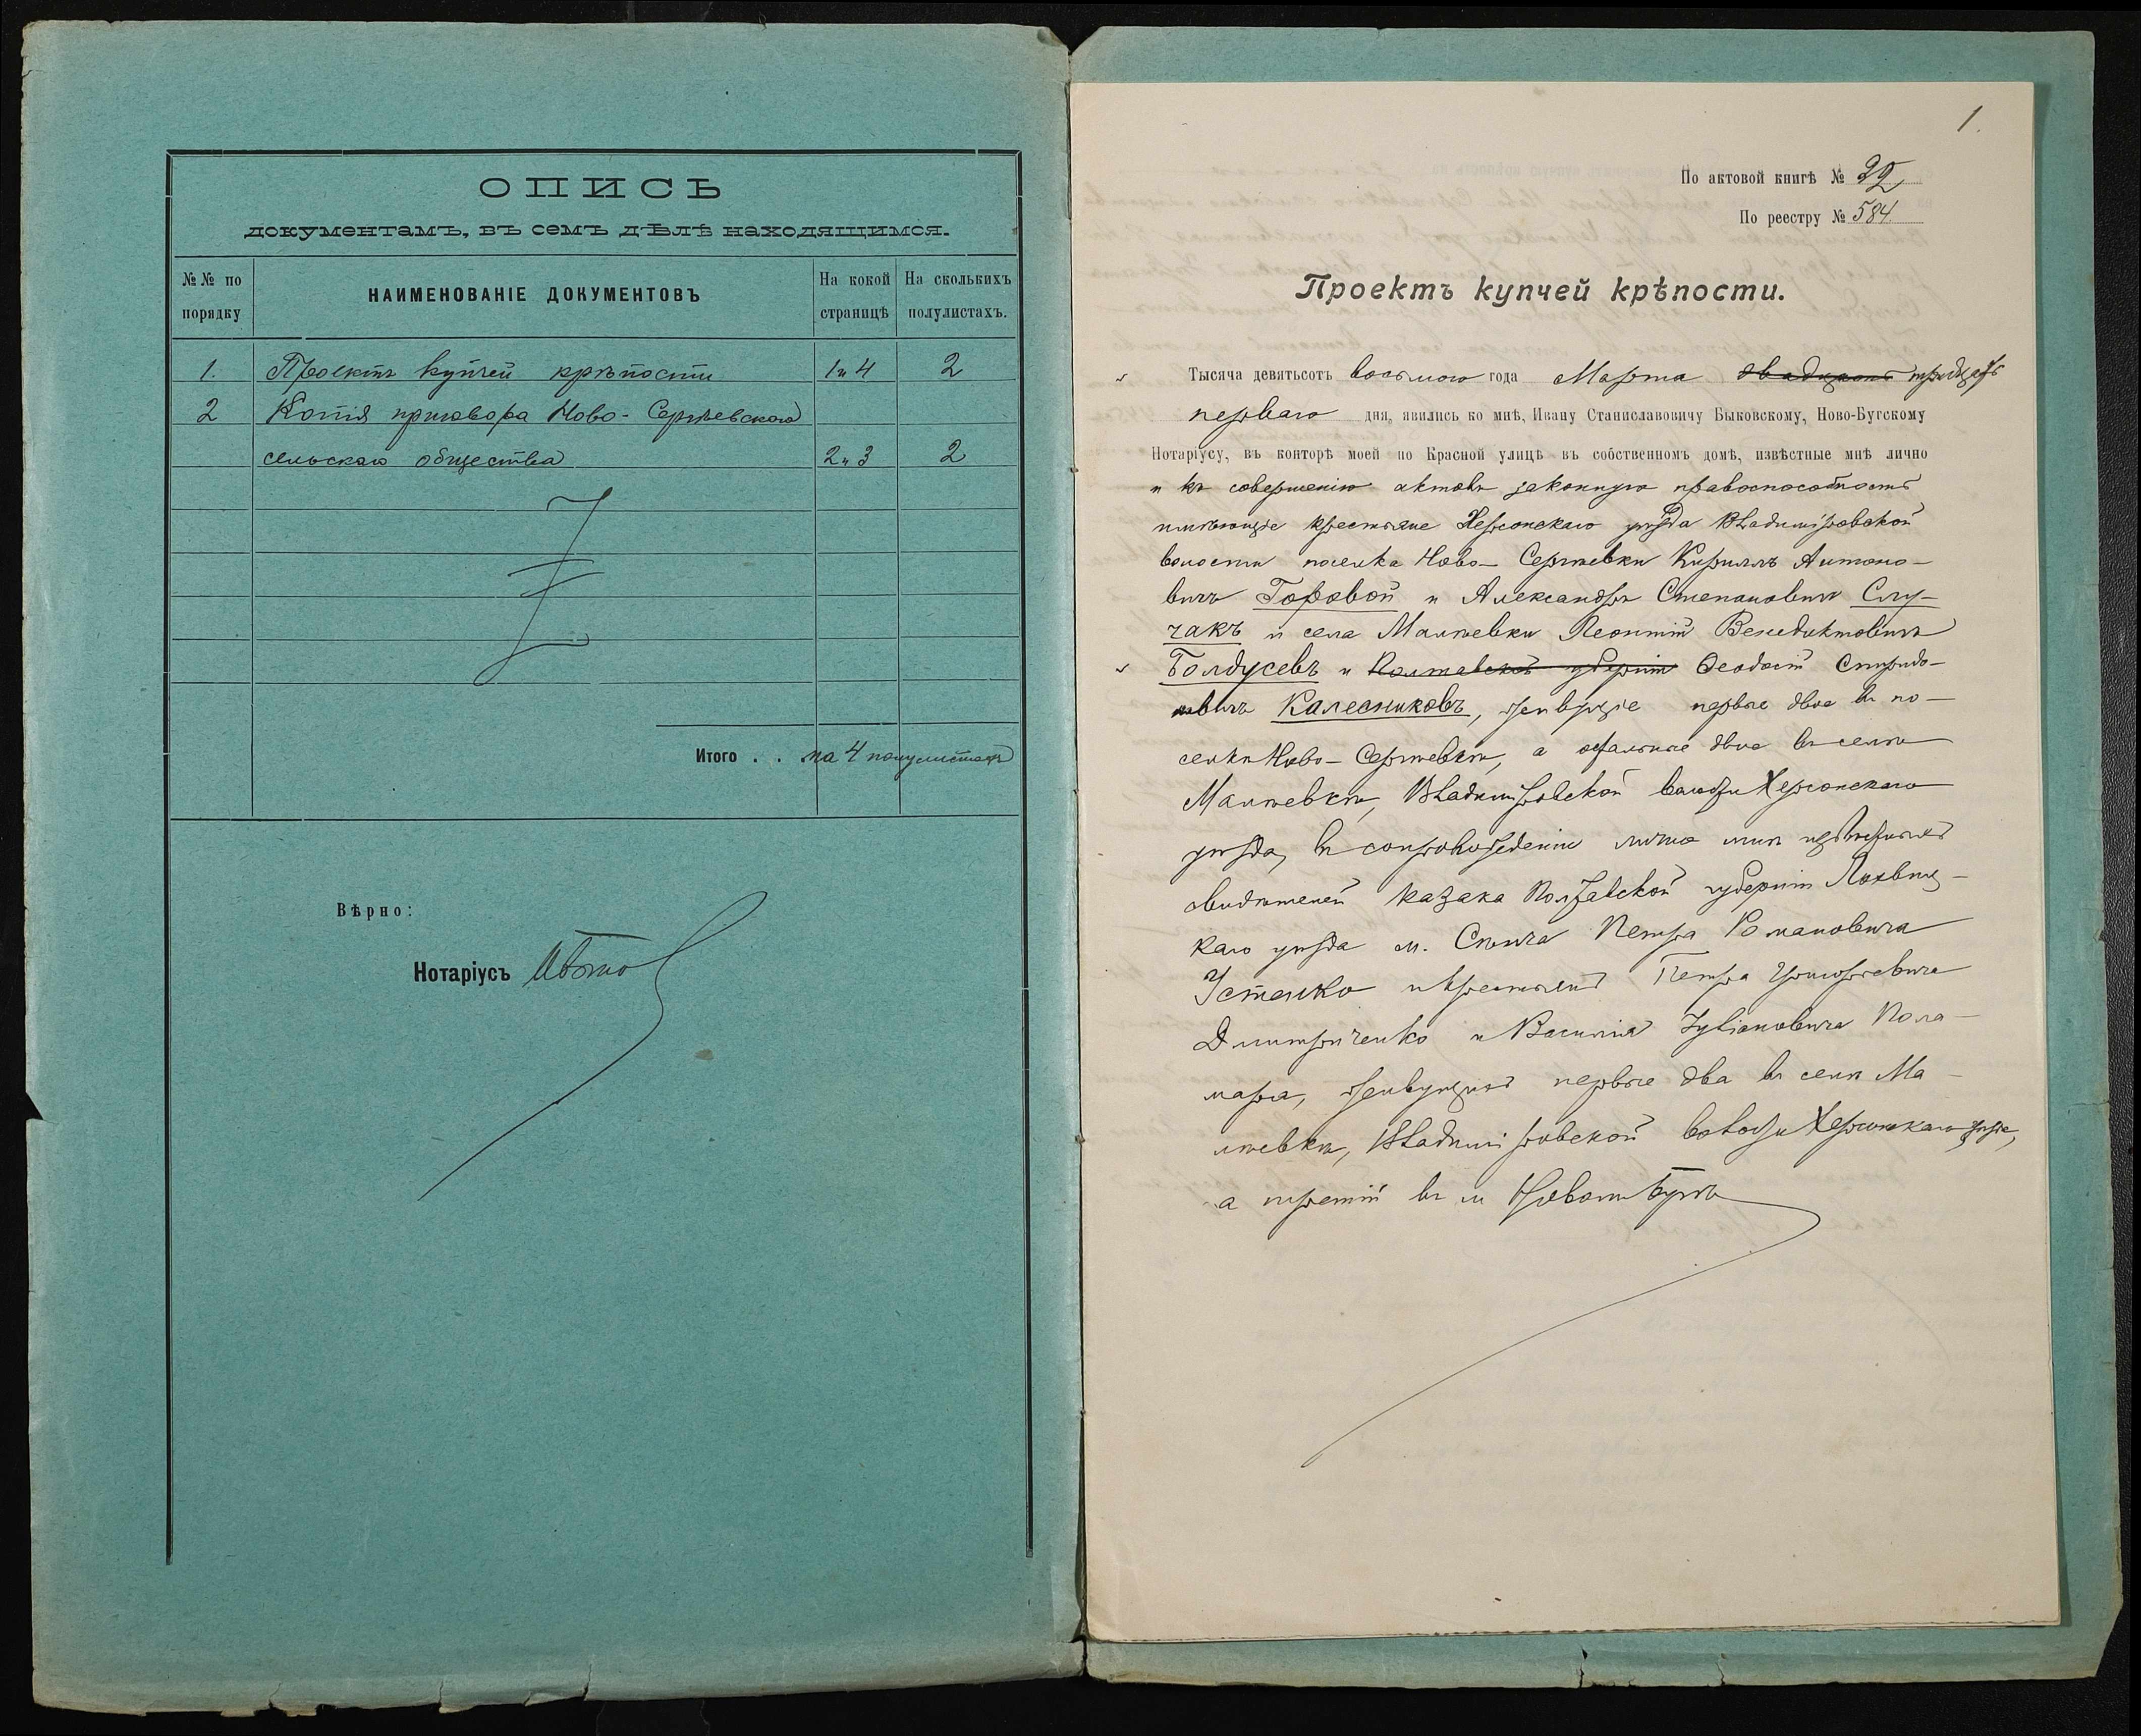 ОПИСЬ
документамъ, въ семъ дѣлѣ находящимся.
№№ по порядку
НАИМЕНОВАНІЕ ДОКУМЕНТОВЪ
На кокой страницѣ
На сколькихъ полулистахъ.
1. Проектъ купчей крѣпости 1 и 4 2
2 Копія приговора Ново-Сергѣевскаго
сельскаго общества 2 и 3 2
Итого . . на 4 полулистахъ
Вѣрно:
Нотаріусъ
1.
По актовой книгѣ № 32
По реестру № 584
Проектъ купчей крѣпости.
Тысяча девятьсотъ восьмого года Марта двадцать тридцать
перваго дня, явились ко мнѣ, Ивану Станиславовичу Быковскому, Ново-Бугскому
Нотаріусу, въ конторѣ моей по Красной улицѣ въ собственномъ домѣ, извѣстные мнѣ лично
и къ совершенію актовъ законную правоспособность
имѣющіе крестьяне Херсонскаго уѣзда Владимiровской
волости поселка Ново-Сергѣевки Кириллъ Антоно-
вичъ Горовой и Александръ Степановичъ Слу-
чакъ и села Малѣевки Леонтій Венедиктовичъ
Болдусевъ и Полтавской губерніи Ѳеодосій Спиридо-
новичъ Калесниковъ, живущіе первые двое въ по-
селкѣ Ново-Сергѣевкѣ, а остальные двое въ селѣ
Малѣевкѣ, Владимiровской волости Херсонскаго
уѣзда, въ сопровожденіи лично мнѣ извѣстныхъ
свидѣтелей казака Полтавской губерніи Лохвиц-
каго уѣзда м. Снѣча Петра Романовича
Устенко и крестьянъ Петра Григорьевича
Дмитриченко и Василія Іуліановича Пола-
мара, живущихъ первые два въ селѣ Ма-
лѣевкѣ, Владимiровской волости Херсонскаго уѣзда,
а третій въ м Новомъ Бугѣ